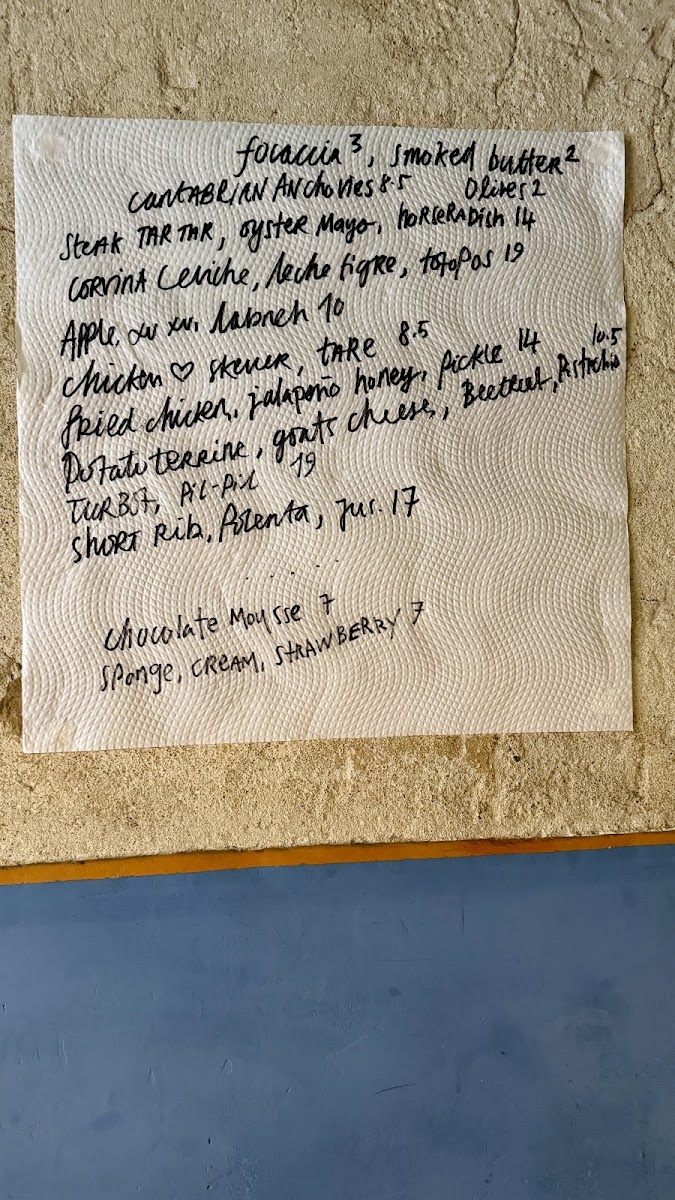 focaccia 3, smoked butter 2
CANTABRIAN ANchovies 8.5 Olives 2
Steak TAR TAR, oyster Mayo, horseRADish 14
CORVINA Ceviche, leche tigre, totopos 19
Apple, xu xu, labneh 10
chicken ♡ skewer, tARe 8.5
fried chicken, jalapeño honey, pickle 14
Potato terrine, goats cheese, Beetroot, Pistachio 10.5
TURBOT, Pil-Pil 19
SHORT Rib, Polenta, jus. 17
.....
chocolate Mousse 7
Sponge, CREAM, STRAWBERRY 7